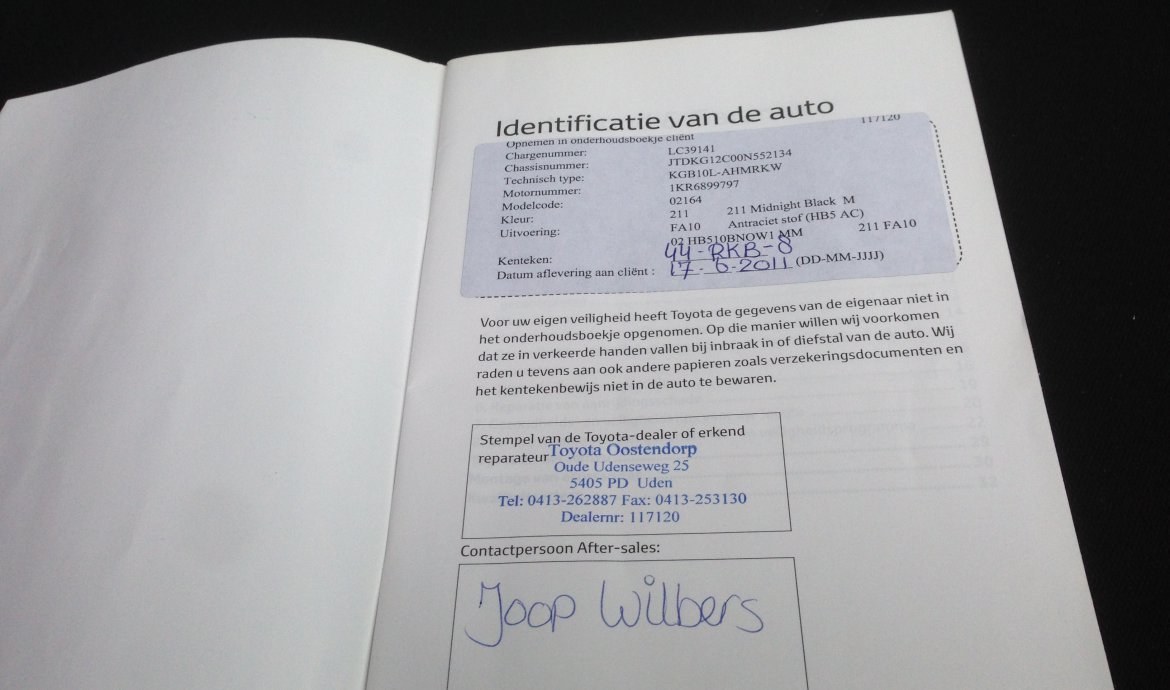 Identificatie van de auto
117120
Opnemen in onderhoudsboekje cliënt
Chargenummer: LC39141
Chassisnummer: JTDKG12C00N552134
Technisch type: KGB10L-AHMRKW
Motornummer: 1KR6899797
Modelcode: 02164
Kleur: 211 211 Midnight Black M
Uitvoering: FA10 Antraciet stof (HB5 AC)
02 HB510BNOW1 MM 211 FA10
Kenteken: 44-RKB-8
Datum aflevering aan cliënt : 17-6-2011 (DD-MM-JJJJ)
Voor uw eigen veiligheid heeft Toyota de gegevens van de eigenaar niet in
het onderhoudsboekje opgenomen. Op die manier willen wij voorkomen
dat ze in verkeerde handen vallen bij inbraak in of diefstal van de auto. Wij
raden u tevens aan ook andere papieren zoals verzekeringsdocumenten en
het kentekenbewijs niet in de auto te bewaren.
Stempel van de Toyota-dealer of erkend
reparateur
Toyota Oostendorp
Oude Udenseweg 25
5405 PD Uden
Tel: 0413-262887 Fax: 0413-253130
Dealernr: 117120
Contactpersoon After-sales:
Joop Wilbers